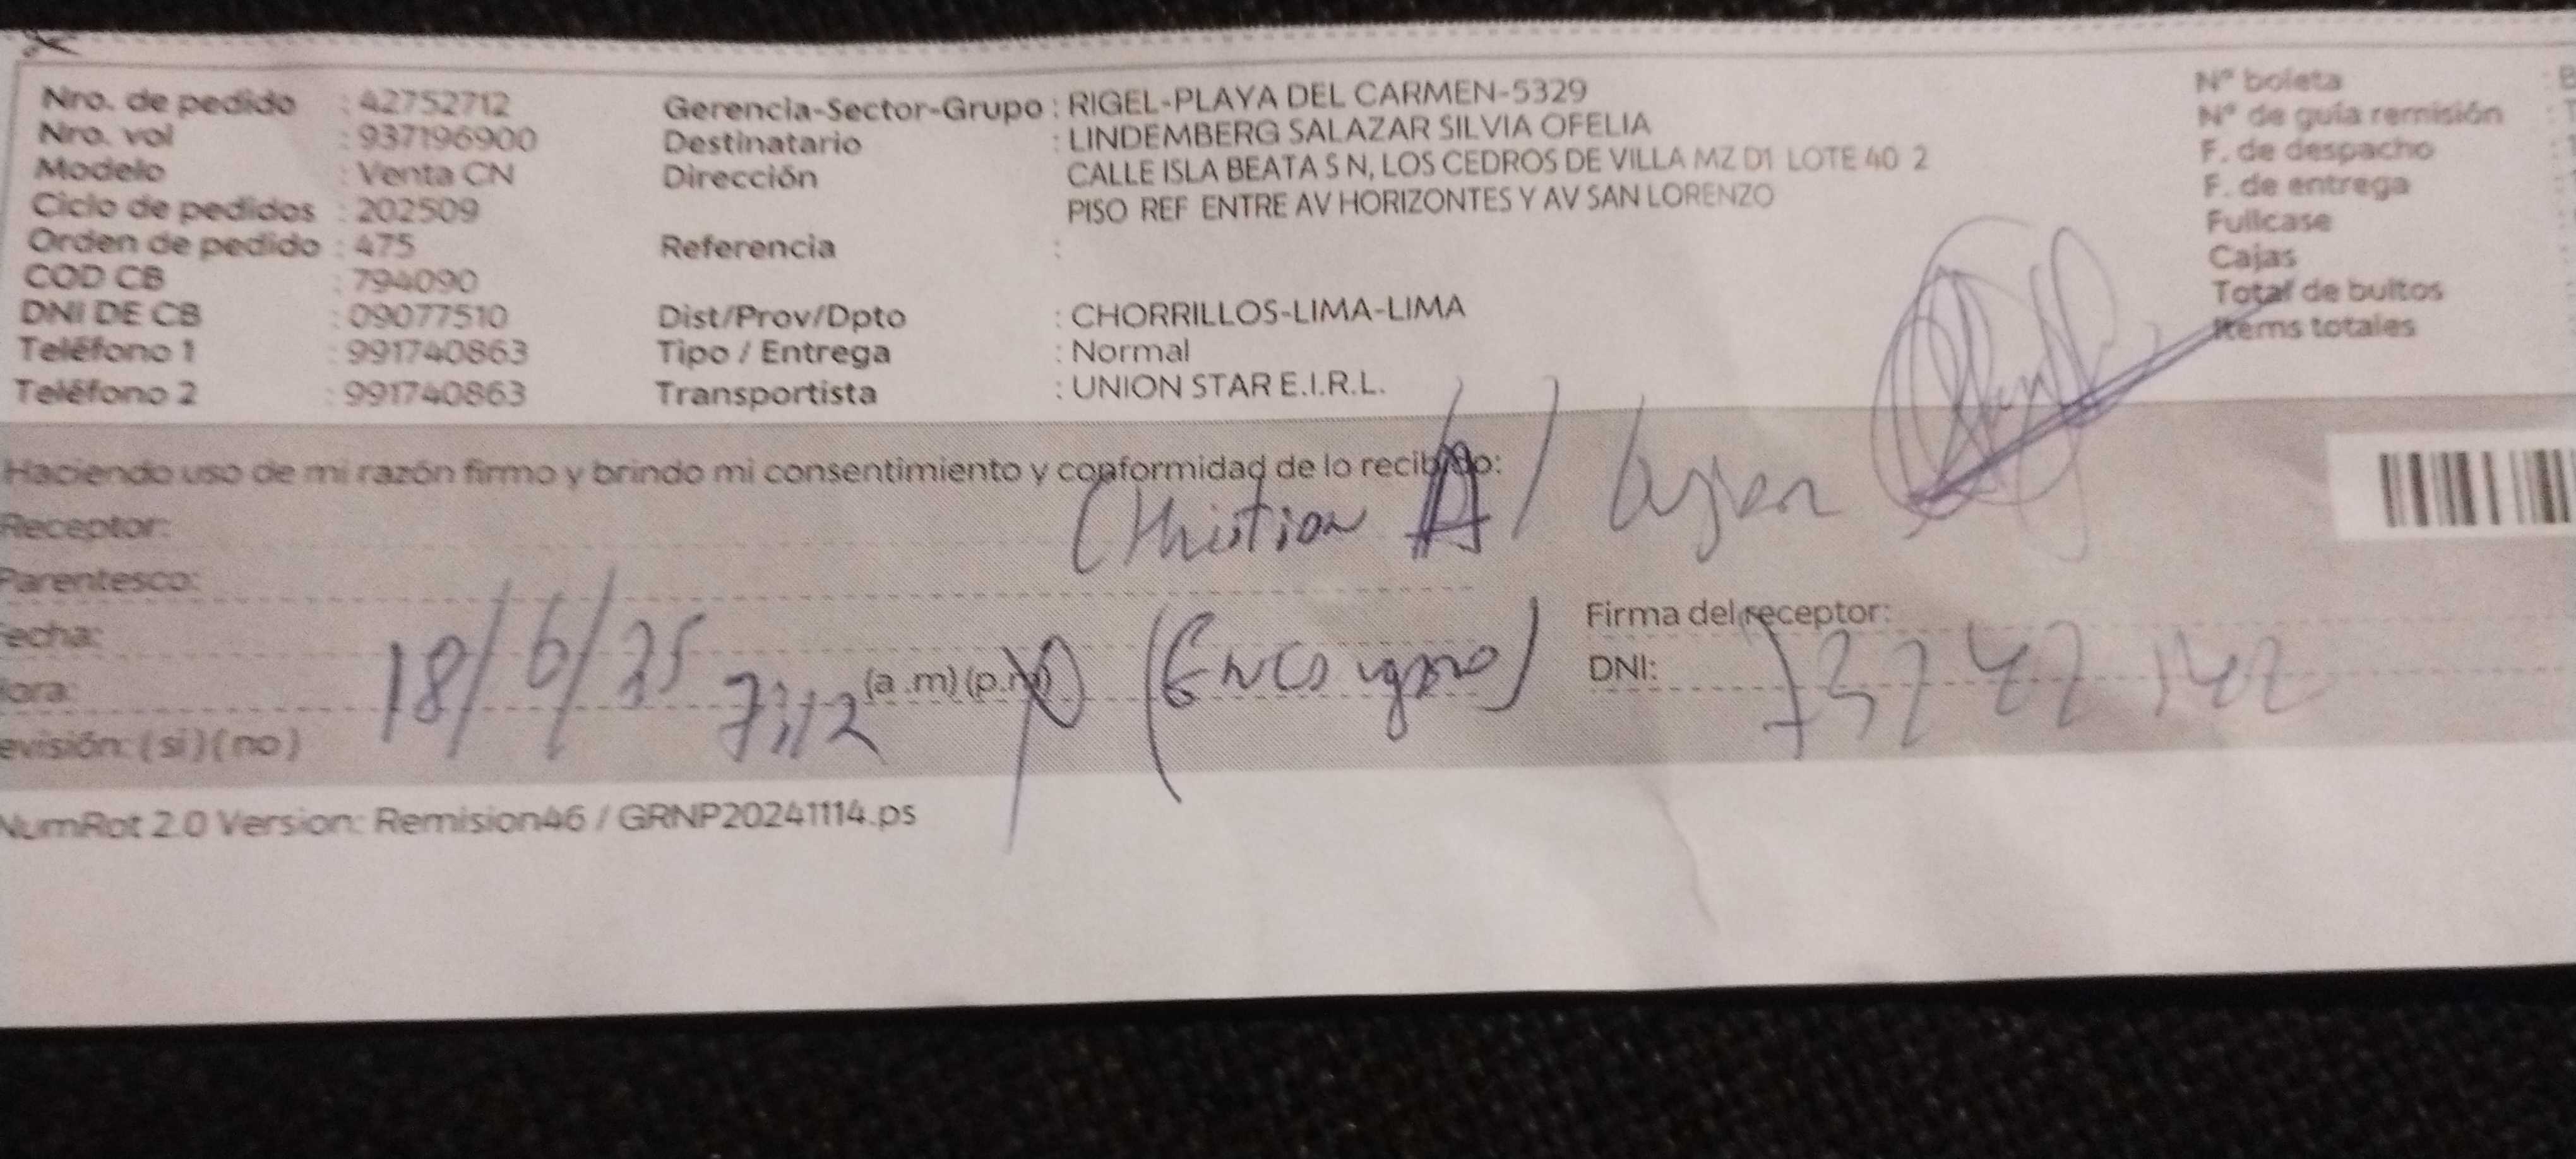 Nro. de pedido : 42752712
Nro. vol : 937196900
Modelo : Venta CN
Ciclo de pedidos : 202509
Orden de pedido : 475
COD CB : 794090
DNI DE CB : 09077510
Teléfono 1 : 991740863
Teléfono 2 : 991740863
Gerencia-Sector-Grupo : RIGEL-PLAYA DEL CARMEN-5329
Destinatario : LINDEMBERG SALAZAR SILVIA OFELIA
Dirección : CALLE ISLA BEATA S N, LOS CEDROS DE VILLA MZ D1 LOTE 40 2
PISO REF ENTRE AV HORIZONTES Y AV SAN LORENZO
Referencia :
Dist/Prov/Dpto : CHORRILLOS-LIMA-LIMA
Tipo / Entrega : Normal
Transportista : UNION STAR E.I.R.L.
N° boleta
N° de guía remisión
F. de despacho
F. de entrega
Fullcase
Cajas
Total de bultos
Items totales
Haciendo uso de mi razón firmo y brindo mi consentimiento y conformidad de lo recibido:
Receptor: Christian
Parentesco:
Fecha: 18/6/25
ora: 7:12 (a .m) (p.m)
evisión: (si) (no)
Firma del receptor:
DNI:
NumRot 2.0 Version: Remision46 / GRNP20241114.ps